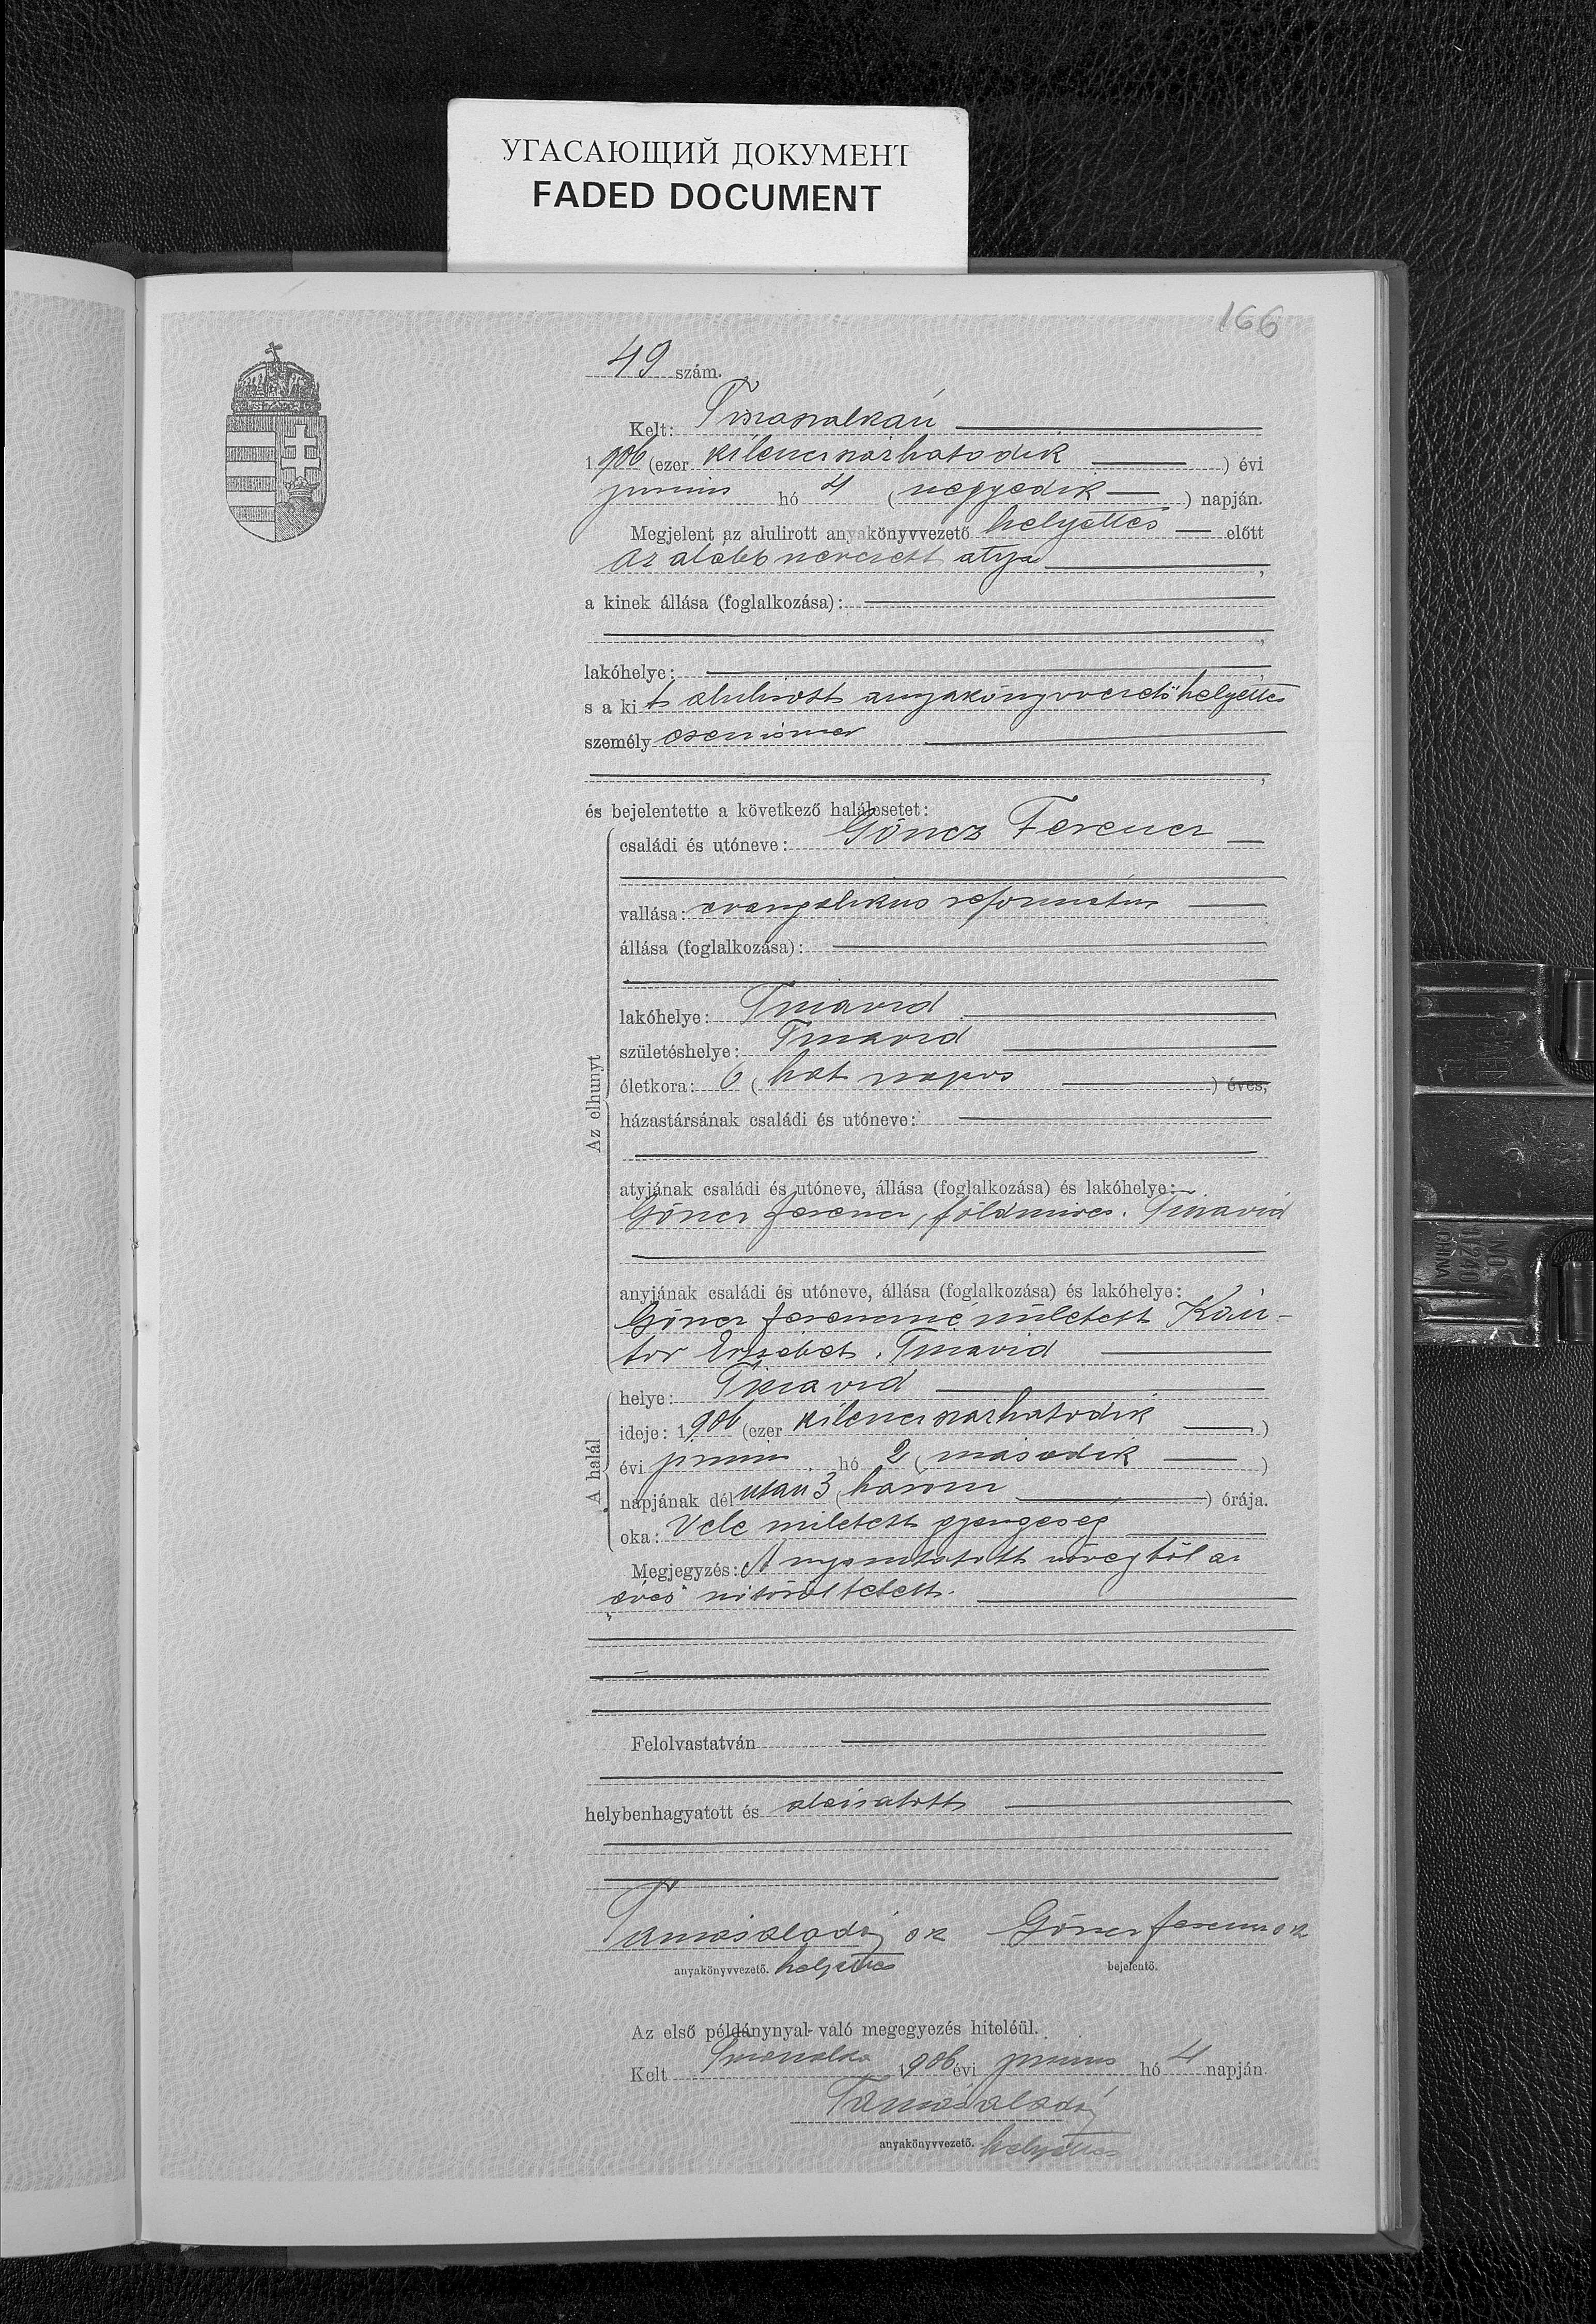 УГАСАЮЩИЙ ДОКУМЕНТ
FADED DOCUMENT
166
49 szám.
Kelt: Tiszaszalkán
1906 (ezer kilenczszázhatodik ) évi
junius hó 4 ( negyedik ) napján.
Megjelent az alulirott anyakönyvvezető helyettes előtt
az alább nevezett atya ,
a kinek állása (foglalkozása):
,
lakóhelye: ,
s a kit alulirott anyakönyvvezető helyettes
személyesen ismer
,
és bejelentette a következő halálesetet:
Az elhunyt
családi és utóneve: Göncz Ferencz
vallása: evangelikus református
állása (foglalkozása):
lakóhelye: Tiszavid
születéshelye: Tiszavid
életkora: 6 ( hat napos ) éves,
házastársának családi és utóneve:
atyjának családi és utóneve, állása (foglalkozása) és lakóhelye:
Göncz Ferencz, földmives. Tiszavid
anyjának családi és utóneve, állása (foglalkozása) és lakóhelye:
Göncz Ferenczné született Kán-
tor Erzsébet. Tiszavid
A halál
helye: Tiszavid
ideje: 1906 (ezer kilenczszázhatodik )
évi junius hó 2 ( második )
napjának délután 3 ( három ) órája.
oka: Vele született gyengeség
Megjegyzés: A nyomtatott szövegből az
„éves" szó töröltetett.
Felolvastatván
helybenhagyatott és aláiratott
Tamás Aladár sk Göncz Ferencz sk
anyakönyvvezető. helyettes bejelentő.
Az első példánynyal való megegyezés hiteléül.
Kelt Tiszaszalka 1906 évi junius hó 4 napján.
Tamás Aladár
anyakönyvvezető. helyettes
NO
1240
CHINA